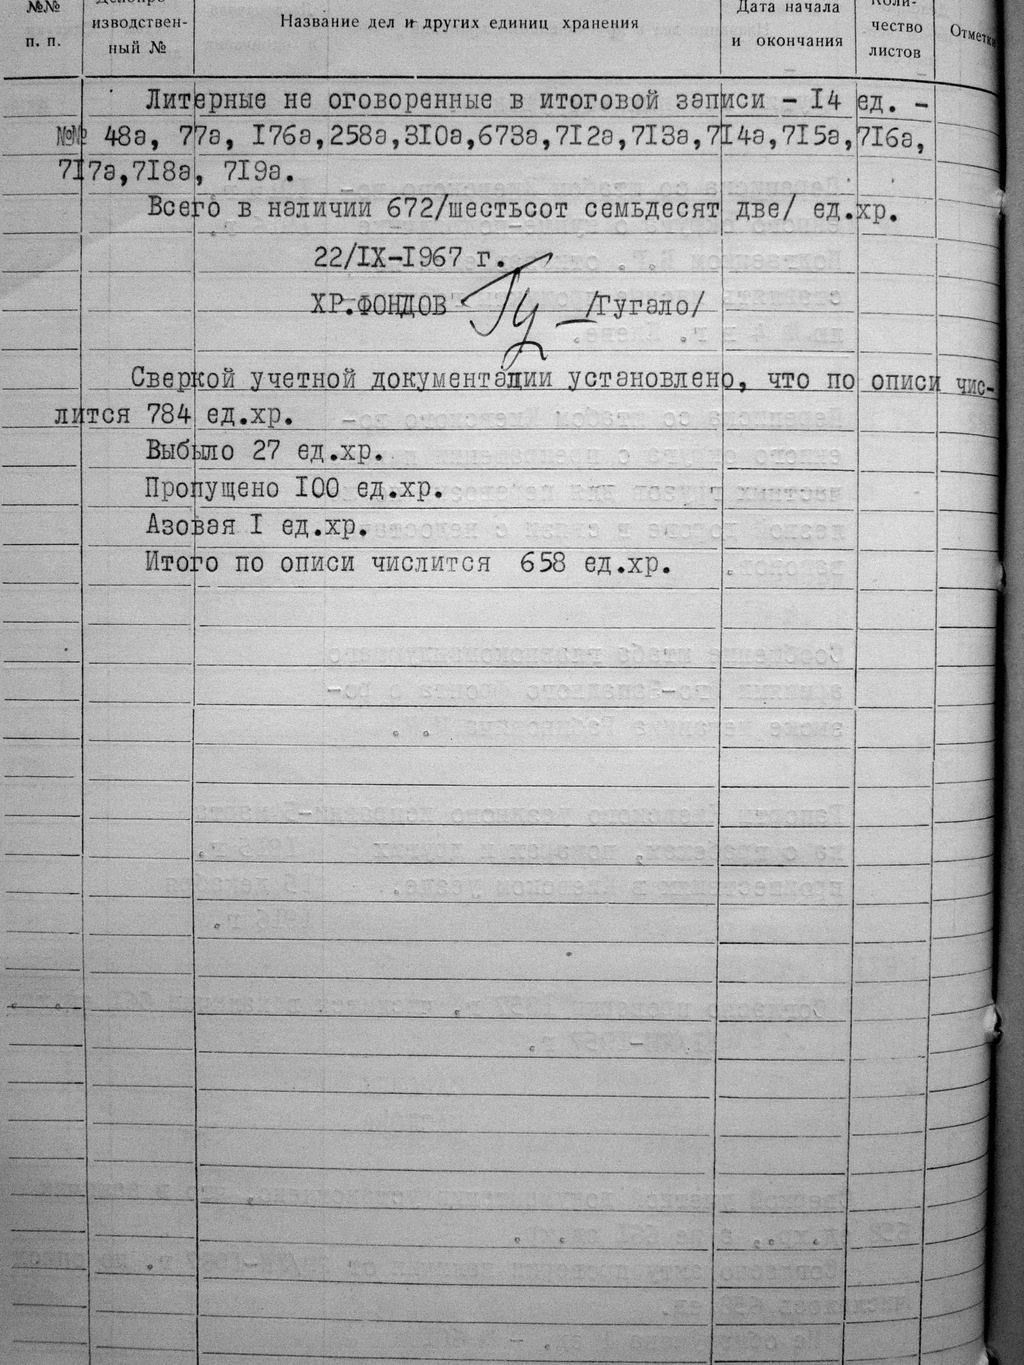 №№
п. п.
изводствен-
ный №
Название дел и других единиц хранения
Дата начала
и окончания
Коли-
чество
листов
Отметки
Литерные не оговоренные в итоговой записи - I4 ед. -
№№ 48а, 77а, I76а,258а,3I0а,673а,7I2а,7I3а,7I4а,7I5а,7I6а,
7I7а,7I8а, 7I9а.
Всего в наличии 672/шестьсот семьдесят две/ ед.хр.
22/IX-I967 г.
ХР.ФОНДОВ /Гугало/
Сверкой учетной документации установлено, что по описи чис-
лится 784 ед.хр.
Выбыло 27 ед.хр.
Пропущено I00 ед.хр.
Азовая I ед.хр.
Итого по описи числится 658 ед.хр.